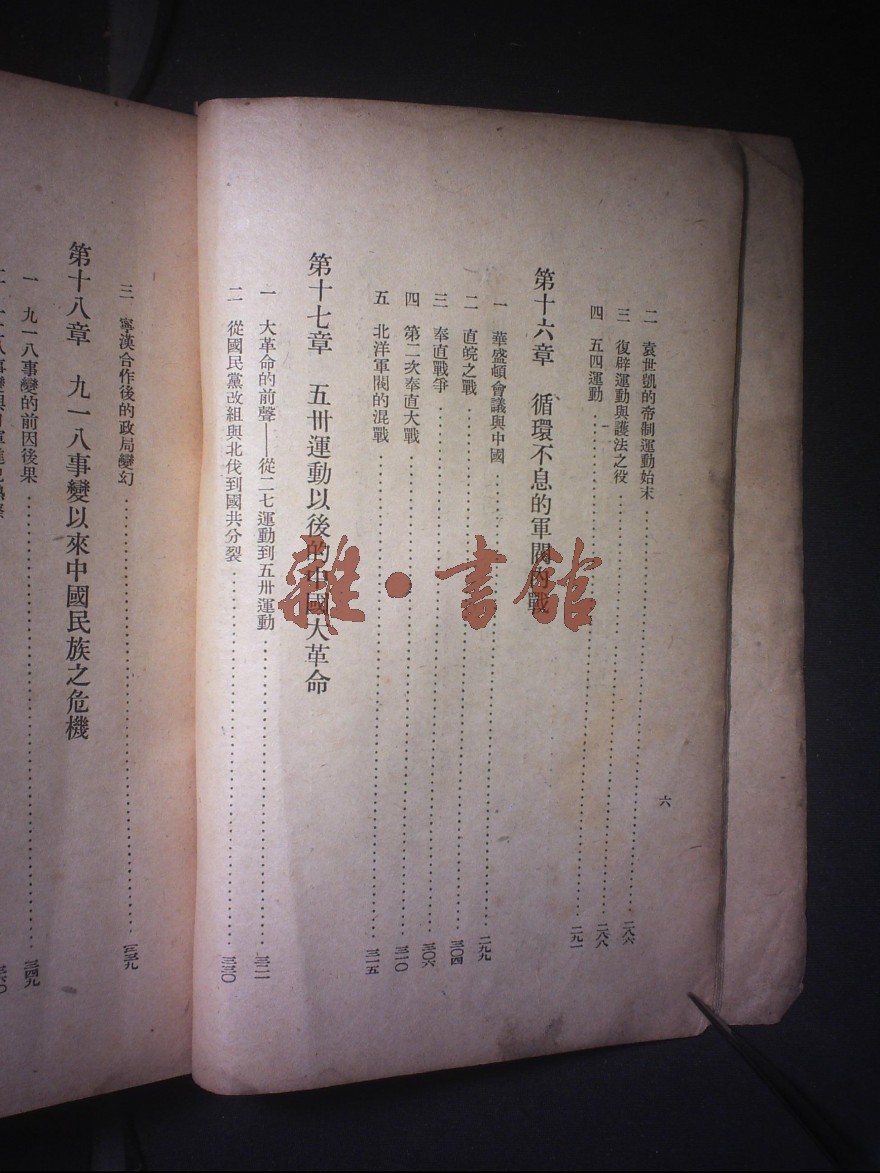 二　袁世凱的帝制運動始末……二八六
三　復辟運動與護法之役……二八八
四　五四運動……二九一
第十六章　循環不息的軍閥內戰
一　華盛頓會議與中國……二九九
二　直皖之戰……三〇四
三　奉直戰爭……三〇六
四　第二次奉直大戰……三一〇
五　北洋軍閥的混戰……三一五
第十七章　五卅運動以後的中國大革命
一　大革命的前聲——從二七運動到五卅運動……三二一
二　從國民黨改組與北伐到國共分裂……三三〇
六
三　寧漢合作後的政局變幻……三三九
第十八章　九一八事變以來中國民族之危機
一　九一八事變的前因後果……三四九
雜·書館